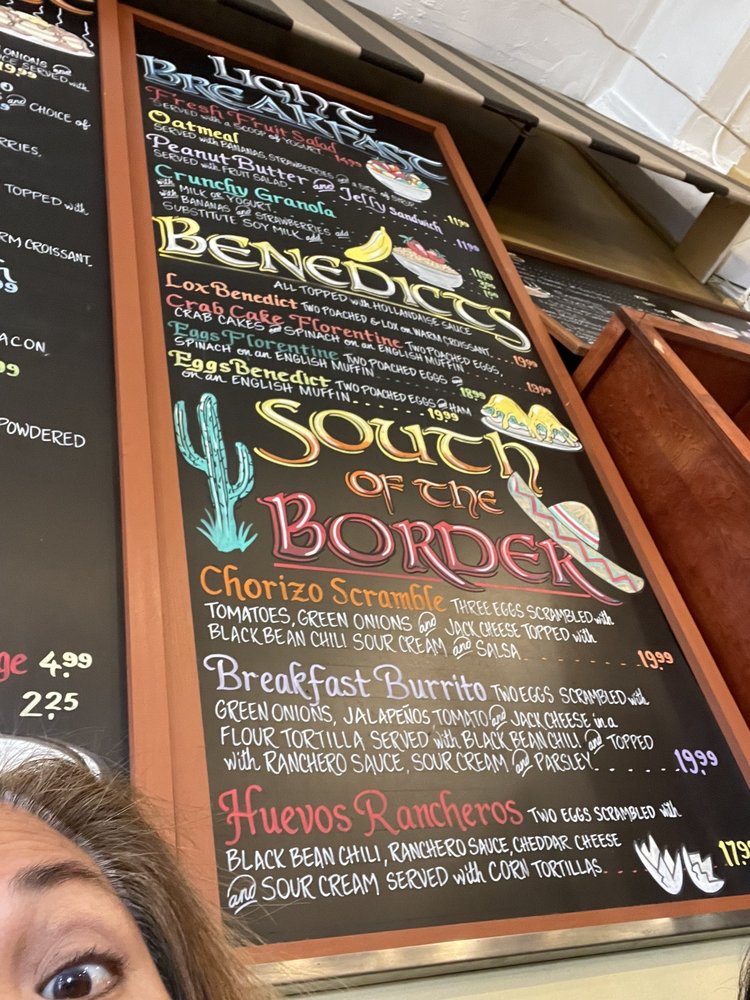 ONIONS and
SERVED with
19.99
and CHOICE of
RRIES,
TOPPED with
RM CROISSANT,
ACON,
POWDERED
ge 4.99
2.25
LIGHT
BREAKFAST
Fresh Fruit Salad
SERVED with a SCOOP of YOGURT 14.99
Oatmeal
SERVED with BANANAS, STRAWBERRIES and a SIDE of SYRUP
Peanut Butter and Jelly Sandwich
SERVED with FRUIT SALAD 11.99
Crunchy Granola 11.99
with MILK OR YOGURT
with BANANAS and STRAWBERRIES add
SUBSTITUTE SOY MILK add
BENEDICTS
ALL TOPPED with HOLLANDAISE SAUCE
Lox Benedict TWO POACHED & LOX on WARM CROISSANT 19.99
Crab Cake Florentine TWO POACHED EGGS,
CRAB CAKES and SPINACH on an ENGLISH MUFFIN 19.99
Eggs Florentine TWO POACHED EGGS and
SPINACH on an ENGLISH MUFFIN 18.99
Eggs Benedict TWO POACHED EGGS and HAM
on an ENGLISH MUFFIN 19.99
SOUTH
OF THE
BORDER
Chorizo Scramble THREE EGGS SCRAMBLED with
TOMATOES, GREEN ONIONS and JACK CHEESE TOPPED with
BLACK BEAN CHILI SOUR CREAM and SALSA 19.99
Breakfast Burrito TWO EGGS SCRAMBLED with
GREEN ONIONS, JALAPEÑOS TOMATO and JACK CHEESE in a
FLOUR TORTILLA SERVED with BLACK BEAN CHILI and TOPPED
with RANCHERO SAUCE, SOUR CREAM and PARSLEY 19.99
Huevos Rancheros TWO EGGS SCRAMBLED with
BLACK BEAN CHILI, RANCHERO SAUCE, CHEDDAR CHEESE
and SOUR CREAM SERVED with CORN TORTILLAS 17.99